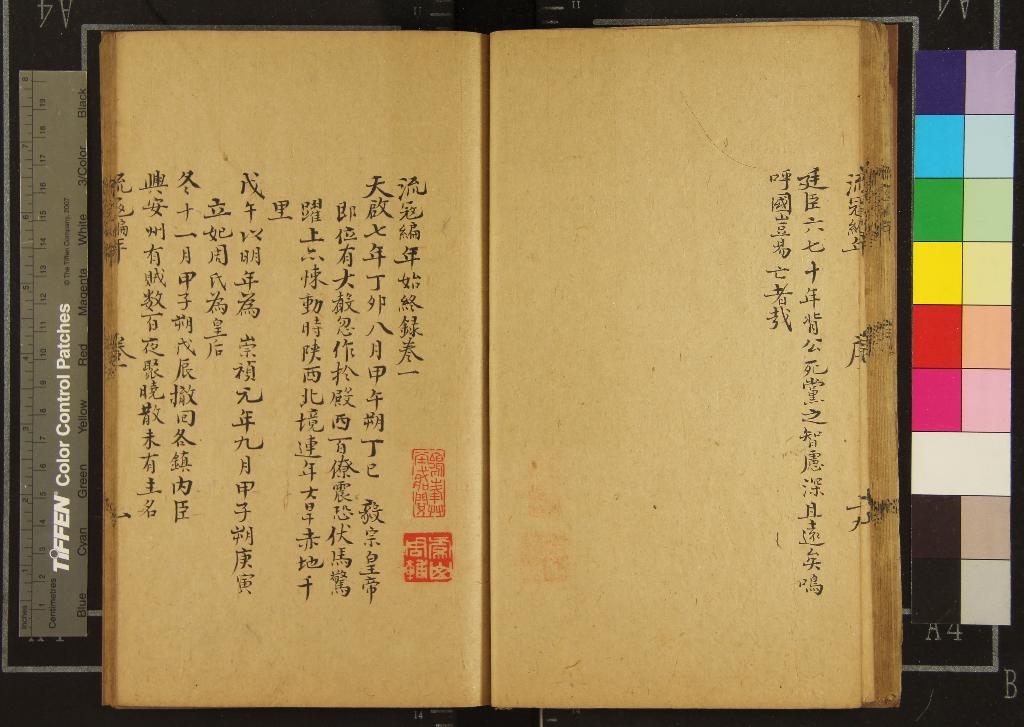 廷臣六七十年背公死黨之智慮深且遠矣嗚
呼國豈易亡者哉
序
十九
流寇編年始終録卷一
天啟七年丁卯八月甲午朔丁巳　毅宗皇帝
即位有大聲忽作於殿西百僚震恐伏馬驚
躍上亦悚動時陕西北境連年大旱赤地千
里
戊午以明年為　崇禎元年九月甲子朔庚寅
立妃周氏為皇后
冬十一月甲子朔戊辰撤回各鎮内臣
興安州有賊数百夜聚曉散未有主名
流寇編年
卷一
一
Inches
Centimetres
TIFFEN Color Control Patches
© The Tiffen Company, 2007
Blue Cyan Green Yellow Red Magenta White 3/Color Black
A4
B